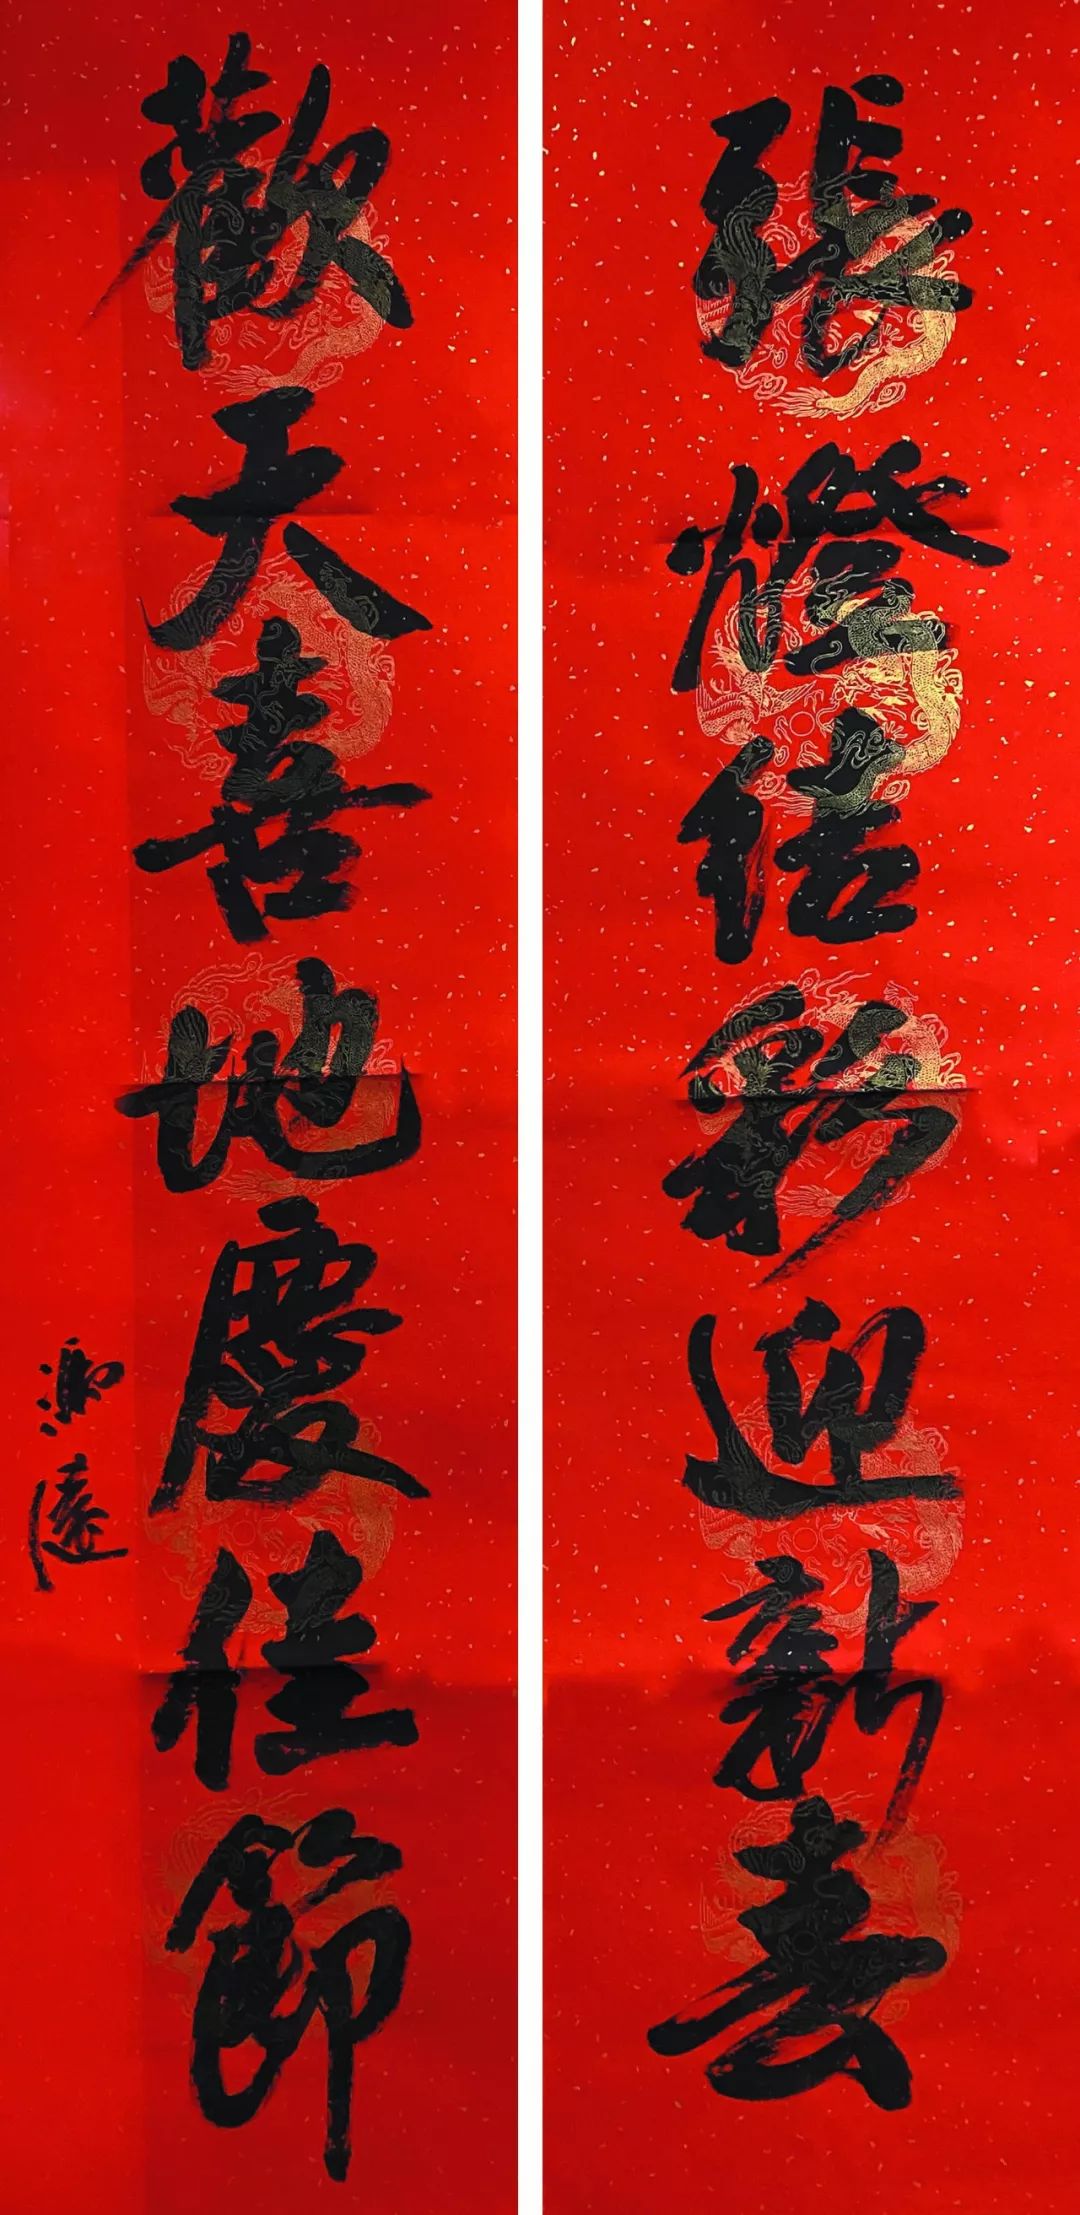 張燈結彩迎新去
歡天喜地慶佳節
遠